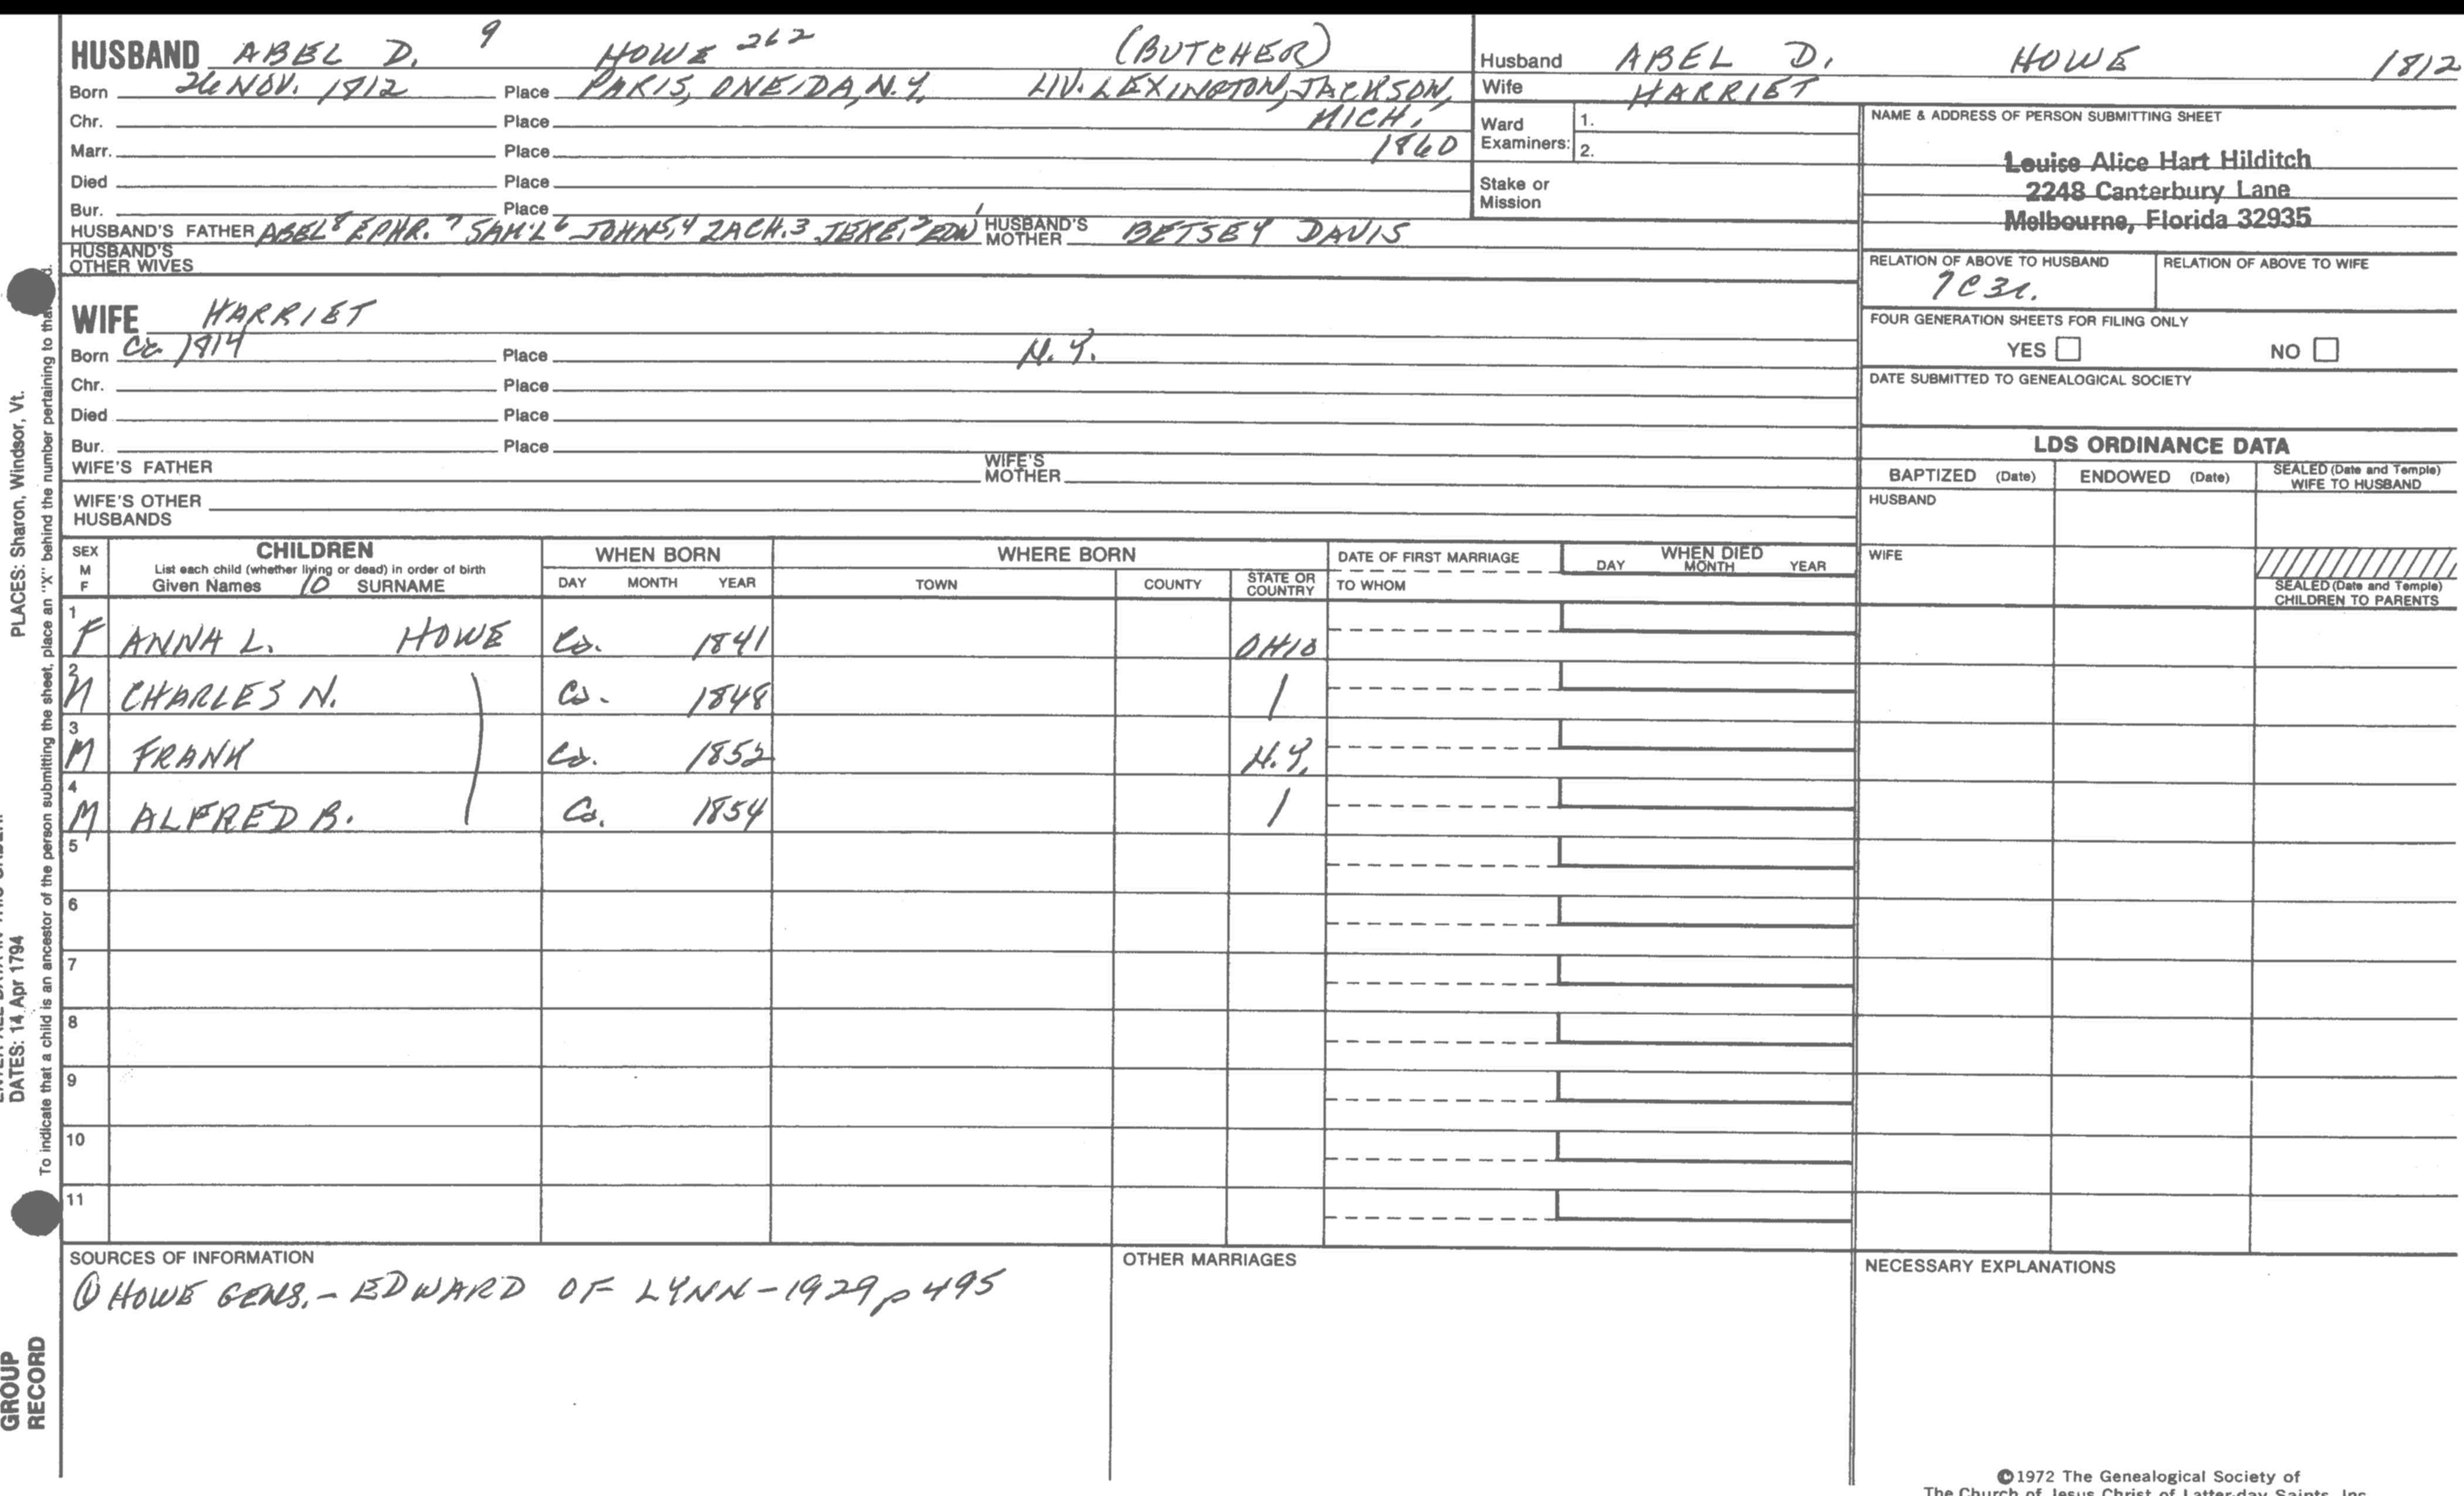 HUSBAND ABEL D. 9 HOWE 262 (BUTCHER)
Born 26 NOV. 1812 Place PARIS, ONEIDA, N.Y. LIV. LEXINGTON, JACKSON,
Chr. Place MICH,
Marr. Place 1860
Died Place
Bur. Place
HUSBAND'S FATHER ABEL 8 EPHR. 7 SAM'L 6 JOHN 5,4 ZACH. 3 JERE. 2 EDW 1 HUSBAND'S MOTHER BETSEY DAVIS
HUSBAND'S OTHER WIVES
Husband ABEL D. HOWE 1812
Wife HARRIET
Ward Examiners: 1.
2.
Stake or Mission
NAME & ADDRESS OF PERSON SUBMITTING SHEET
Louise Alice Hart Hilditch
2248 Canterbury Lane
Melbourne, Florida 32935
RELATION OF ABOVE TO HUSBAND RELATION OF ABOVE TO WIFE
7C3r.
FOUR GENERATION SHEETS FOR FILING ONLY
YES NO
DATE SUBMITTED TO GENEALOGICAL SOCIETY
WIFE HARRIET
Born Ca 1814 Place N.Y.
Chr. Place
Died Place
Bur. Place
WIFE'S FATHER WIFE'S MOTHER
WIFE'S OTHER HUSBANDS
LDS ORDINANCE DATA
BAPTIZED (Date) ENDOWED (Date) SEALED (Date and Temple) WIFE TO HUSBAND
HUSBAND
WIFE
SEALED (Date and Temple) CHILDREN TO PARENTS
SEX M F CHILDREN WHEN BORN WHERE BORN DATE OF FIRST MARRIAGE WHEN DIED
List each child (whether living or dead) in order of birth
Given Names 10 SURNAME DAY MONTH YEAR TOWN COUNTY STATE OR COUNTRY TO WHOM DAY MONTH YEAR
1 F ANNA L. HOWE Ca. 1841 OHIO
2 M CHARLES N. Ca. 1848
3 M FRANK Ca. 1852 N.Y.
4 M ALFRED B. Ca. 1854
5
6
7
8
9
10
11
SOURCES OF INFORMATION
① HOWE GENS. - EDWARD OF LYNN - 1929 p 495
OTHER MARRIAGES
NECESSARY EXPLANATIONS
©1972 The Genealogical Society of
The Church of Jesus Christ of Latter-day Saints, Inc.
PLACES: Sharon, Windsor, Vt.
DATES: 14 Apr 1794
To indicate that a child is an ancestor of the person submitting the sheet, place an "X" behind the number pertaining to
GROUP
RECORD